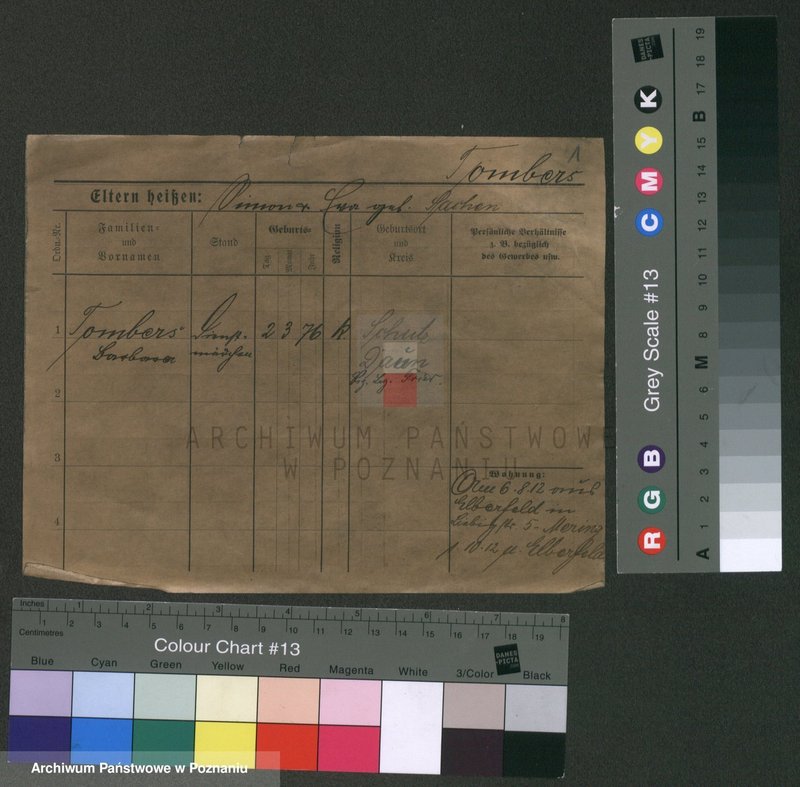 1
Tombers
Eltern heißen: Simon u. Eva geb. Sachen
Ordn.-Nr.
Familien- und Vornamen
Stand
Geburts-
Tag
Monat
Jahr
Religion
Geburtsort und Kreis
Persönliche Verhältnisse z. B. bezüglich des Gewerbes usw.
1 Tombers Dienst- 2 3 76 k Schutz
Barbara mädchen Daun
Bez. Trier.
2
3
4
Wohnung:
Am 6.8.12 aus
Elberfeld in
5-
1.10.12 n. Elberfeld
ARCHIWUM PAŃSTWOWE
W POZNANIU
DANES-PICTA.COM
Grey Scale #13
R G B C M Y K
A 1 2 3 4 5 6 M 8 9 10 11 12 13 14 15 B 17 18 19
Inches 1 2 3 4 5 6 7 8
Centimetres 1 2 3 4 5 6 7 8 9 10 11 12 13 14 15 16 17 18 19
Colour Chart #13
DANES-PICTA.COM
Blue Cyan Green Yellow Red Magenta White 3/Color Black
Archiwum Państwowe w Poznaniu